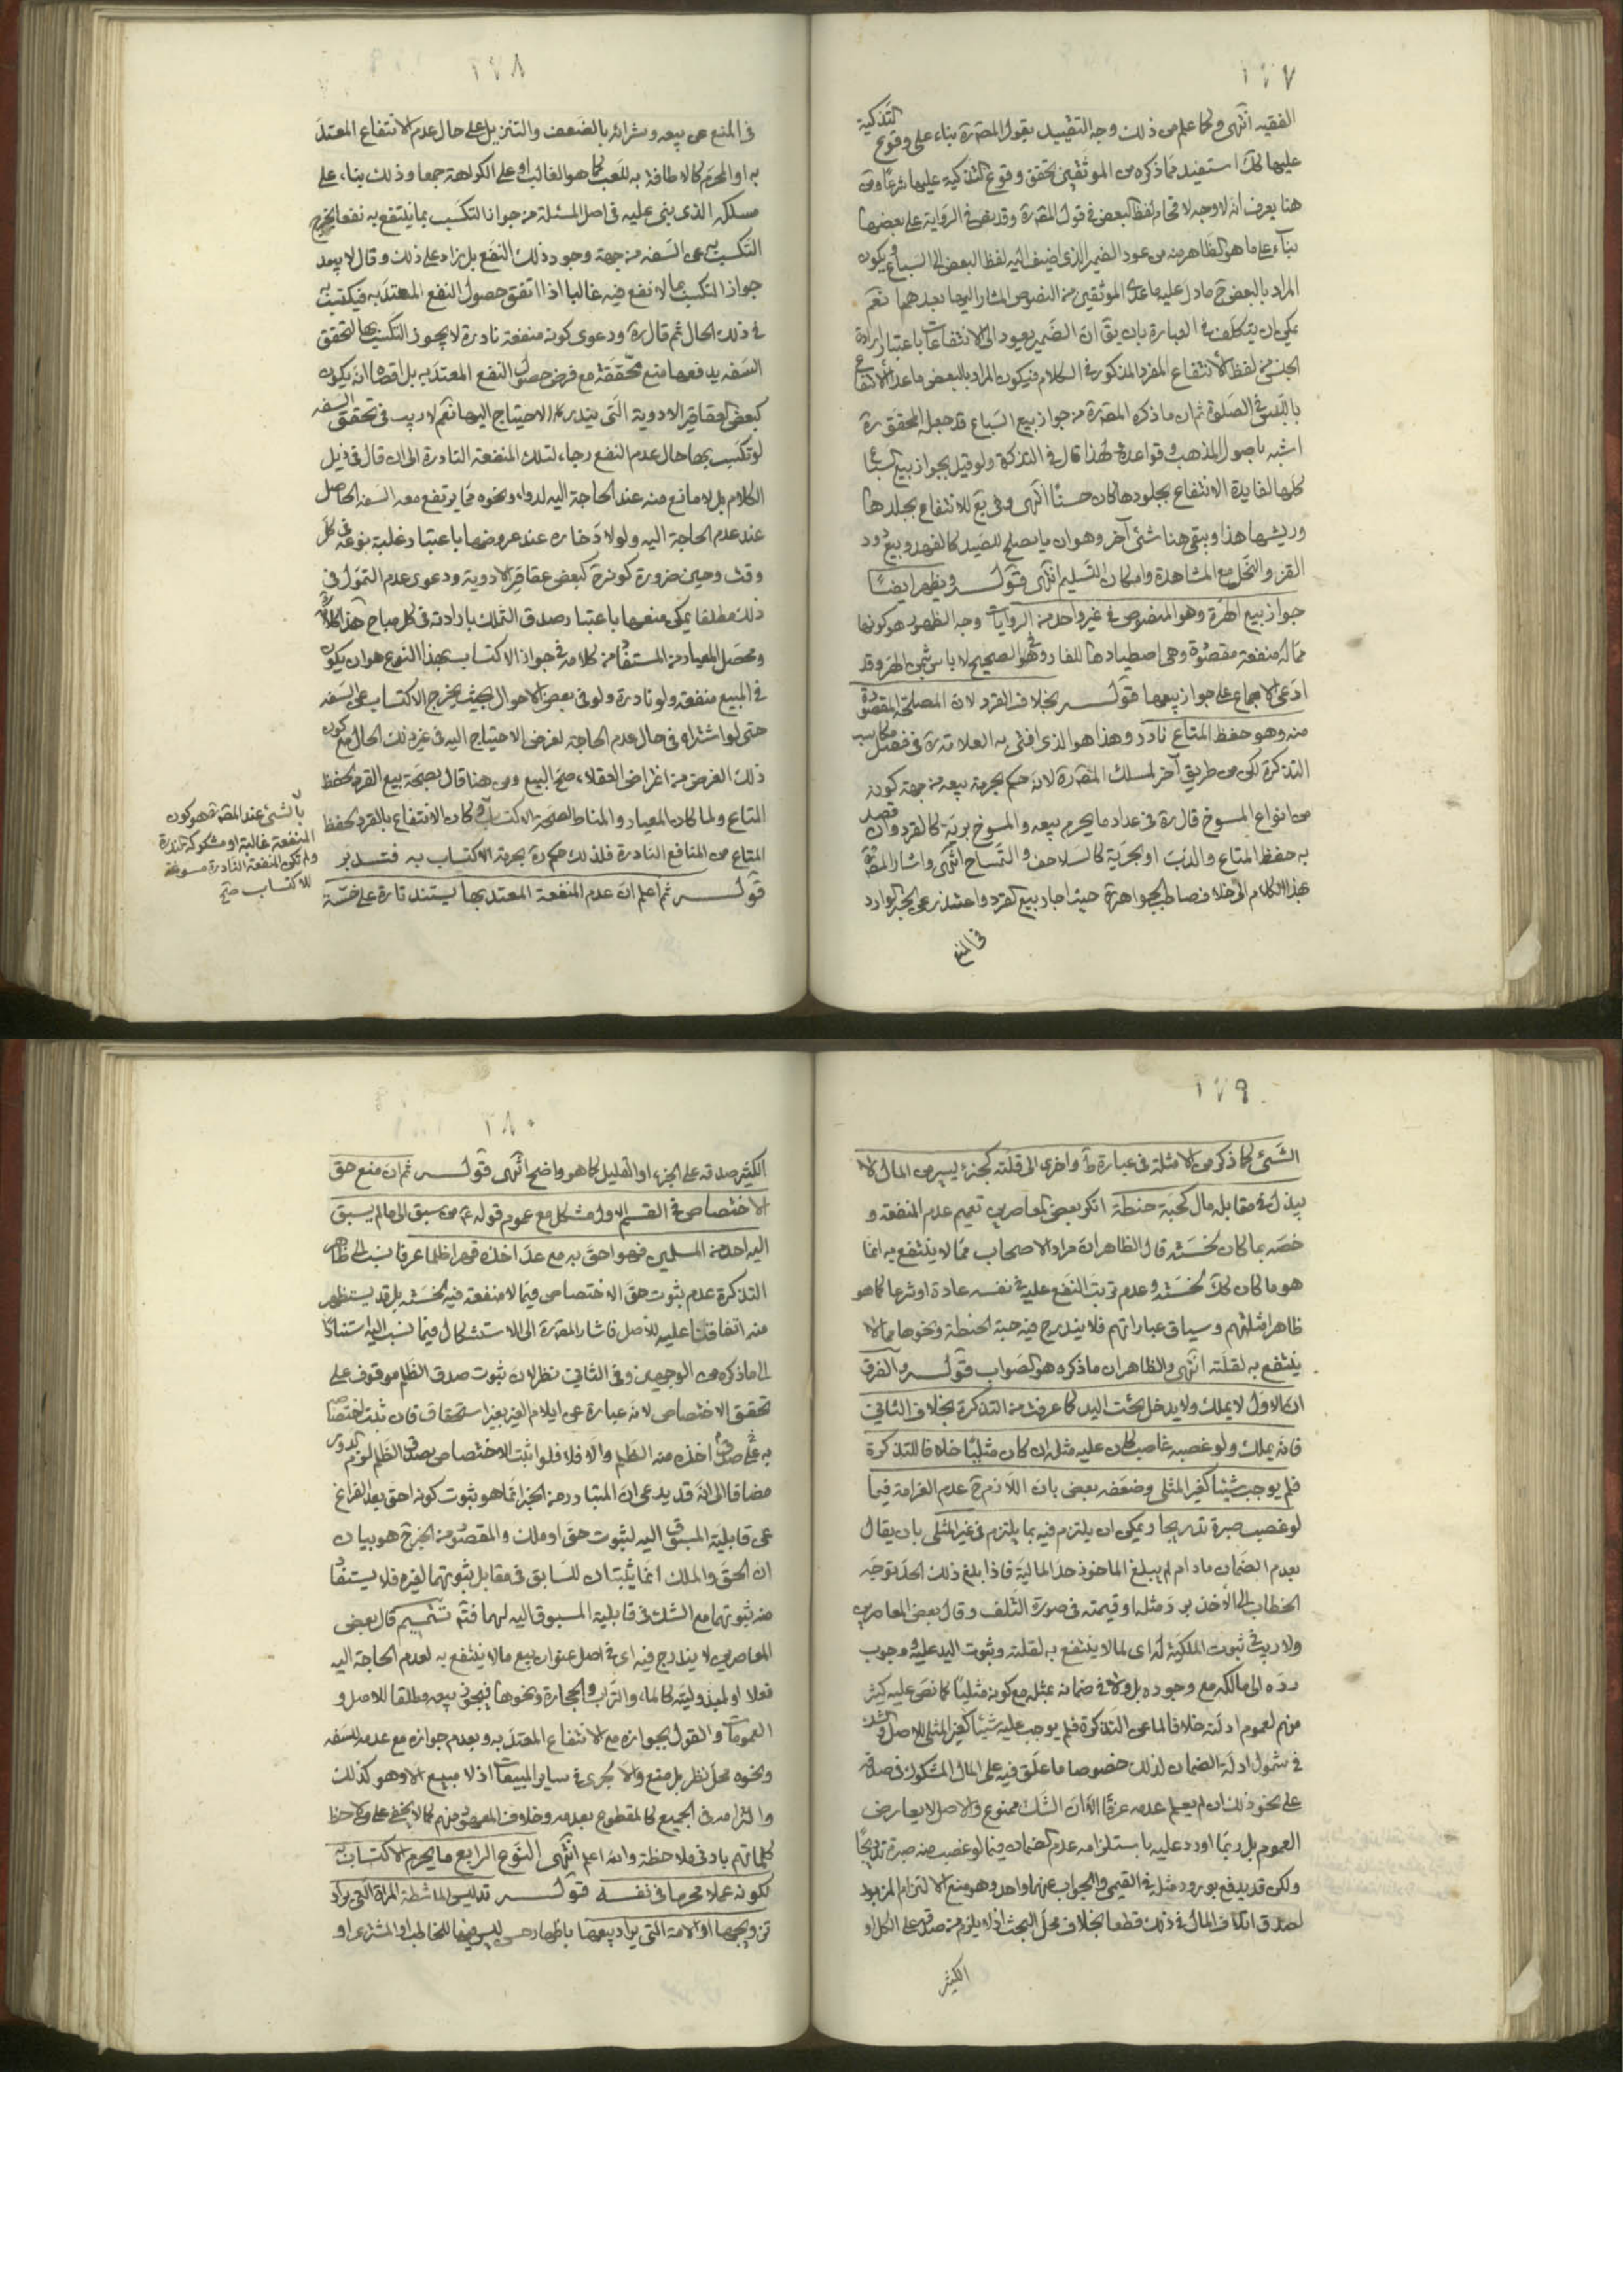 ١٧٧
الفقيه انتهى وكما علم من ذلك وجه التقييد بقول المصرة بناء على وقوع التذكية
عليها كك استفيد مما ذكره من الموثقين تحقق وقوع التذكية عليها شرعا ومن
هنا يعرف انه لا وجه لاقحام لفظ البعض في قول المصرة وقد نص في الرواية على بعضها
بناء على ما هو الظاهر منه من عود الضمير الذي اضيف اليه لفظ البعض الى السباع ويكون
المراد بالبعض ح ما دل عليه ما عدى الموثقين من النصوص المشار اليها بعدهما نعم
يمكن ان يتكلف في العبارة بان يق ان الضمير يعود الى الانتفاعات باعتبار ارادة
الجنس من لفظ الانتفاع المفرد المذكور في الكلام فيكون المراد بالبعض ما عدا الانتفاع
باللبس في الصلوة ثم ان ما ذكره المصرة من جواز بيع السباع قد جعله المحقق ره
اشبه باصول المذهب وقواعده ولهذا قال في التذكرة ولو قيل بجواز بيع السباع
كلها لفايدة الانتفاع بجلودها كان حسنا انتهى وفى يع للانتفاع بجلدها
وريشها هذا وبقى هنا شئ آخر وهو ان ما يصلح للصيد كالفهد وبيع دود
القز والنحل مع المشاهدة وامكان التسليم انتهى قوله ويظهر ايضا
جواز بيع الهرة وهو المنصوص في غير واحد من الروايات وجه الظهور هو كونها
مما له منفعة مقصودة وهى اصطيادها للفار وفى الصحيح لا باس بثمن الهر وقد
ادعى الاجماع على جواز بيعها قوله بخلاف القرد لان المصلحة المقصودة
منه وهو حفظ المتاع نادر وهذا هو الذي افتى به العلامة ره في فصل مكاسب
التذكرة لكن من طريق آخر لمسلك المصرة لانه حكم بحرمة بيعه من جهة كونه
من انواع المسوخ قال ره في عداد ما يحرم بيعه والمسوخ برية كالقرد وان قصد
به حفظ المتاع والدب او بحرية كالسلاحف والتمساح انتهى واشار المصرة
بهذا الكلام الى خلاف صاحب الجواهر ره حيث اجاد بيع القرد واعتذر عن الخبر الوارد
في المنع
١٧٨
في المنع عن بيعه وشرائه بالضعف والتنزيل على حال عدم الانتفاع المعتد
به او المحرم كالاطافة به للعب كما هو الغالب او على الكراهة جمعا وذلك بناء على
مسلكه الذي بنى عليه في اصل المسئلة من جواز التكسب بما ينتفع به نفعا يخرج
التكسب به عن السفه من جهة وجود ذلك النفع بل زاد على ذلك وقال لا يبعد
جواز التكسب بما لا نفع فيه غالبا اذا اتفق حصول النفع المعتد به فيكتسب به
في ذلك الحال ثم قال ره ودعوى كونه منفعة نادرة لا يجوز التكسب بها لتحقق
السفه يدفعها منع تحققه مع فرض حصول النفع المعتد به بل اقصاه انه يكون
كبعض عقاقير الادوية التى يندر الاحتياج اليها نعم لا ريب في تحقق السفه
لو تكسب بها حال عدم النفع رجاء لتلك المنفعة النادرة الى ان قال في ذيل
الكلام بل لا مانع منه عند الحاجة اليه لدواء ونحوه مما يرتفع معه السفه الحاصل
عند عدم الحاجة اليه ولولا ذخاره عند عروضها باعتبار غلبة نوعه في كل
وقت وحين ضرورة كونه كبعض عقاقير الادوية ودعوى عدم التمول في
ذلك مطلقا يمكن منعها باعتبار صدق التملك بارادته في كل مباح هذا كلامه
ومحصل المعيار المستفاد من كلامه في جواز الاكتساب بهذا النوع هو ان يكون
في المبيع منفعة ولو نادرة ولو في بعض الاحوال بحيث يخرج الاكتساب عن السفه
حتى لو اشتراه في حال عدم الحاجة لغرض الاحتياج اليه في غير ذلك الحال مع كون
ذلك الغرض من اغراض العقلاء صح البيع ومن هنا قال بصحة بيع القرد لحفظ
المتاع ولما كان المعيار والمناط لصحة الاكتساب وكان الانتفاع بالقرد لحفظ
المتاع من المنافع النادرة فلذلك حكم ره بحرمة الاكتساب به فتدبر
قوله ثم اعلم ان عدم المنفعة المعتد بها يستند تارة على خسة
بالشئ عند المصرة هو كون
المنفعة غالبة او مشكوكة الندرة
ولم تكن المنفعة النادرة مسوغة
للاكتساب صح
١٧٩
الشئ كما ذكر من الامثلة في عبارة ط واخرى الى قلته كجزء يسير من المال لا
يبذل في مقابله مال كحبة حنطة انكر بعض المعاصرين تعميم عدم المنفعة و
خصه بما كان لخسته قال الظاهر ان مراد الاصحاب مما لا ينتفع به انما
هو ما كان كك لخسته وعدم ترتب النفع عليه في نفسه عادة او شرعا كما هو
ظاهر امثلتهم وسياق عباراتهم فلا يندرج فيه حبة الحنطة ونحوها مما لا
ينتفع به لقلته انتهى والظاهر ان ما ذكره هو الصواب قوله والفرق
ان الاول لا يملك ولا يدخل تحت اليد كما عرفت من التذكرة بخلاف الثاني
فانه يملك ولو غصبه غاصب كان عليه مثله ان كان مثليا خلافا للتذكرة
فلم يوجب شيئا كغير المثلي وضعفه بعض بان اللازم ح عدم الغرامة فيما
لو غصب صبرة تدريجا ويمكن ان يلتزم فيه بما يلتزم في غير المثلي بان يقال
بعدم الضمان ما دام لم يبلغ الماخوذ حد المالية فاذا بلغ ذلك الحد توجه
الخطاب الى الآخذ برد مثله او قيمته في صورة التلف وقال بعض المعاصرين
ولا ريب في ثبوت الملكية له اى لما لا ينتفع به لقلته وثبوت اليد عليه ووجوب
رده الى مالكه مع وجوده بل ولا في ضمانه بمثله مع كونه مثليا كما نص عليه كثير
منهم لعموم ادلته خلافا لما عن التذكرة فلم يوجب عليه شيئا كغير المثلي للاصل والشك
في شمول ادلة الضمان لذلك خصوصا ما علق فيه على المال المشكوك في صدقه
على نحو ذلك ان لم يعلم عدمه عرفا الا ان الشك ممنوع والاصل لا يعارض
العموم بل ربما اورد عليه باستلزامه عدم الضمان فيما لو غصب منه صبرة تدريجا
ولكن قد يدفع بورود مثله في القيمي والجواب عنهما واحد وهو منع الالتزام المزبود
لصدق اتلاف المال في ذلك قطعا بخلاف محل البحث اذ لا يلزم من صدقه على الكل او
الكثير
١٨٠
الكثير صدقه على الجزء او القليل كما هو واضح انتهى قوله ثم ان منع حق
الاختصاص في القسم الاول مشكل مع عموم قوله ص من سبق الى ما لم يسبق
اليه احد من المسلمين فهو احق به مع عد اخذه قهرا ظلما عرفا نسب الى ظاهر
التذكرة عدم ثبوت حق الاختصاص فيما لا منفعة فيه لخسته بل قد يستظهر
منه اتفاقنا عليه للاصل فاشار المصرة الى الاستشكال فيما نسب اليه استنادا
الى ما ذكره من الوجهين وفى الثاني نظر لان ثبوت صدق الظلم موقوف على
تحقق الاختصاص لانه عبارة عن ايلام الغير بغير استحقاق فان ثبت اختصاصه
به صدق على اخذه منه الظلم والا فلا فلو اثبت الاختصاص بصدق الظلم لزم الدور
مضافا الى انه قد يدعى ان المتبادر من الخبر انما هو ثبوت كونه احق بعد الفراغ
عن قابلية المسبوق اليه لثبوت حق او ملك والمقصود من الخبر ح هو بيان
ان الحق والملك انما يثبتان للسابق في مقابل ثبوتهما لغيره فلا يستفاد
منه ثبوتهما مع الشك في قابلية المسبوق اليه لهما فتم تتميم قال بعض
المعاصرين لا يندرج فيه اى في اصل عنوان بيع ما لا ينتفع به لعدم الحاجة اليه
فعلا او لمبذوليته كالماء والتراب والحجارة ونحوها فيجوز بيعه مطلقا للاصل و
العمومات والقول بجوازه مع الانتفاع المعتد به وبعدم جوازه مع عدمه للسفه
ونحوه محل نظر بل منع والا لجرى في ساير المبيعات اذ لا مبيع الا وهو كذلك
والتزامه في الجميع كالمقطوع بعدمه وخلاف المعروف منهم كما لا يخفى على من لاحظ
كلماتهم بادنى ملاحظة والله اعلم انتهى النوع الرابع ما يحرم الاكتساب به
لكونه عملا محرما في نفسه قوله تدليس الماشطة المراة التى يراد
تزويجها او الامة التي يراد بيعها باظهار حسن ليس فيها للخاطب او المشترى او